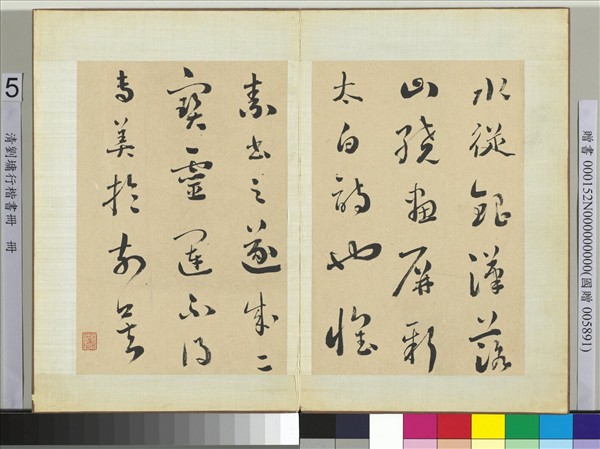 贈書 000152N000000000(國贈 005891)
水從銀漢落
山繞畫屏新
太白詩也懷
素書之遂成二
寶靈運不得
專美於前矣
5
清劉墉行楷書冊 冊